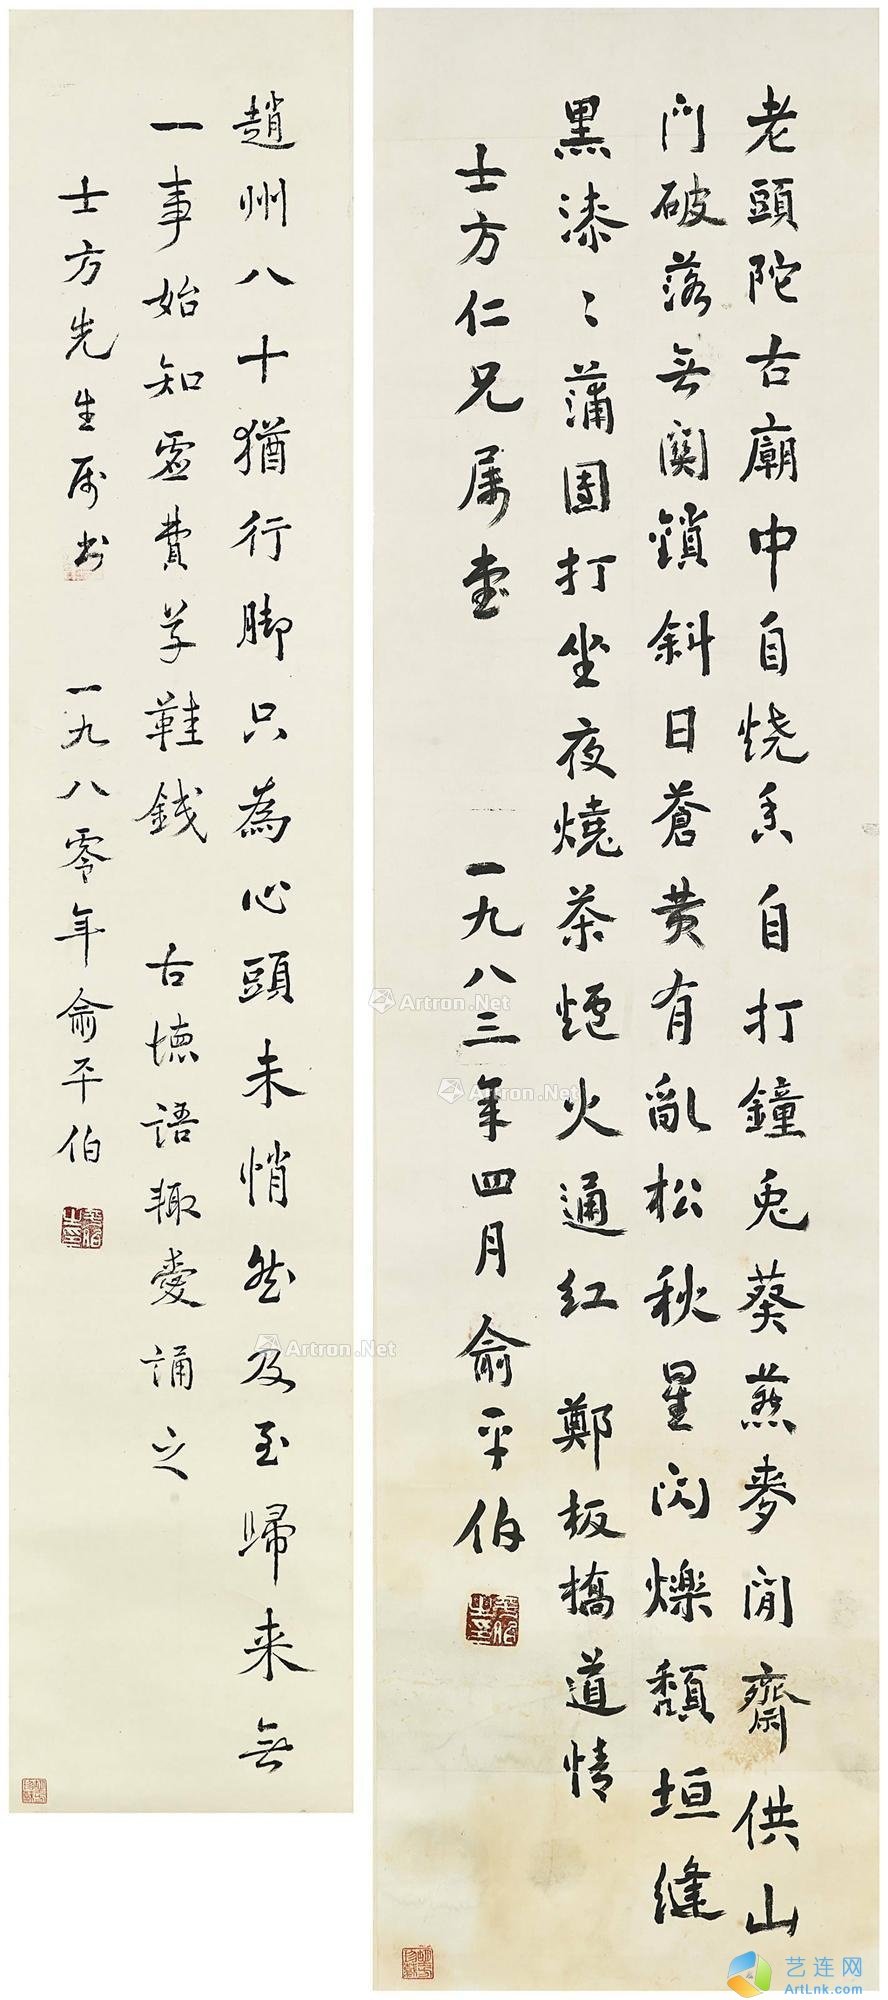 老頭陀古廟中自燒香自打鐘兎葵燕麥閒齋供山
門破落無関鎖斜日蒼黄有亂松秋星闪爍頽垣縫
黑漆〻蒲團打坐夜燒茶爐火通紅 鄭板橋道情
士方仁兄属書 一九八三年四月俞平伯
趙州八十猶行脚只為心頭未悄然及至歸来無
一事始知虚費草鞋錢 古德語輒愛誦之
士方先生属书 一九八零年俞平伯
Artron.Net
Artron.Net
Artron.Net
艺连网
ArtLnk.com